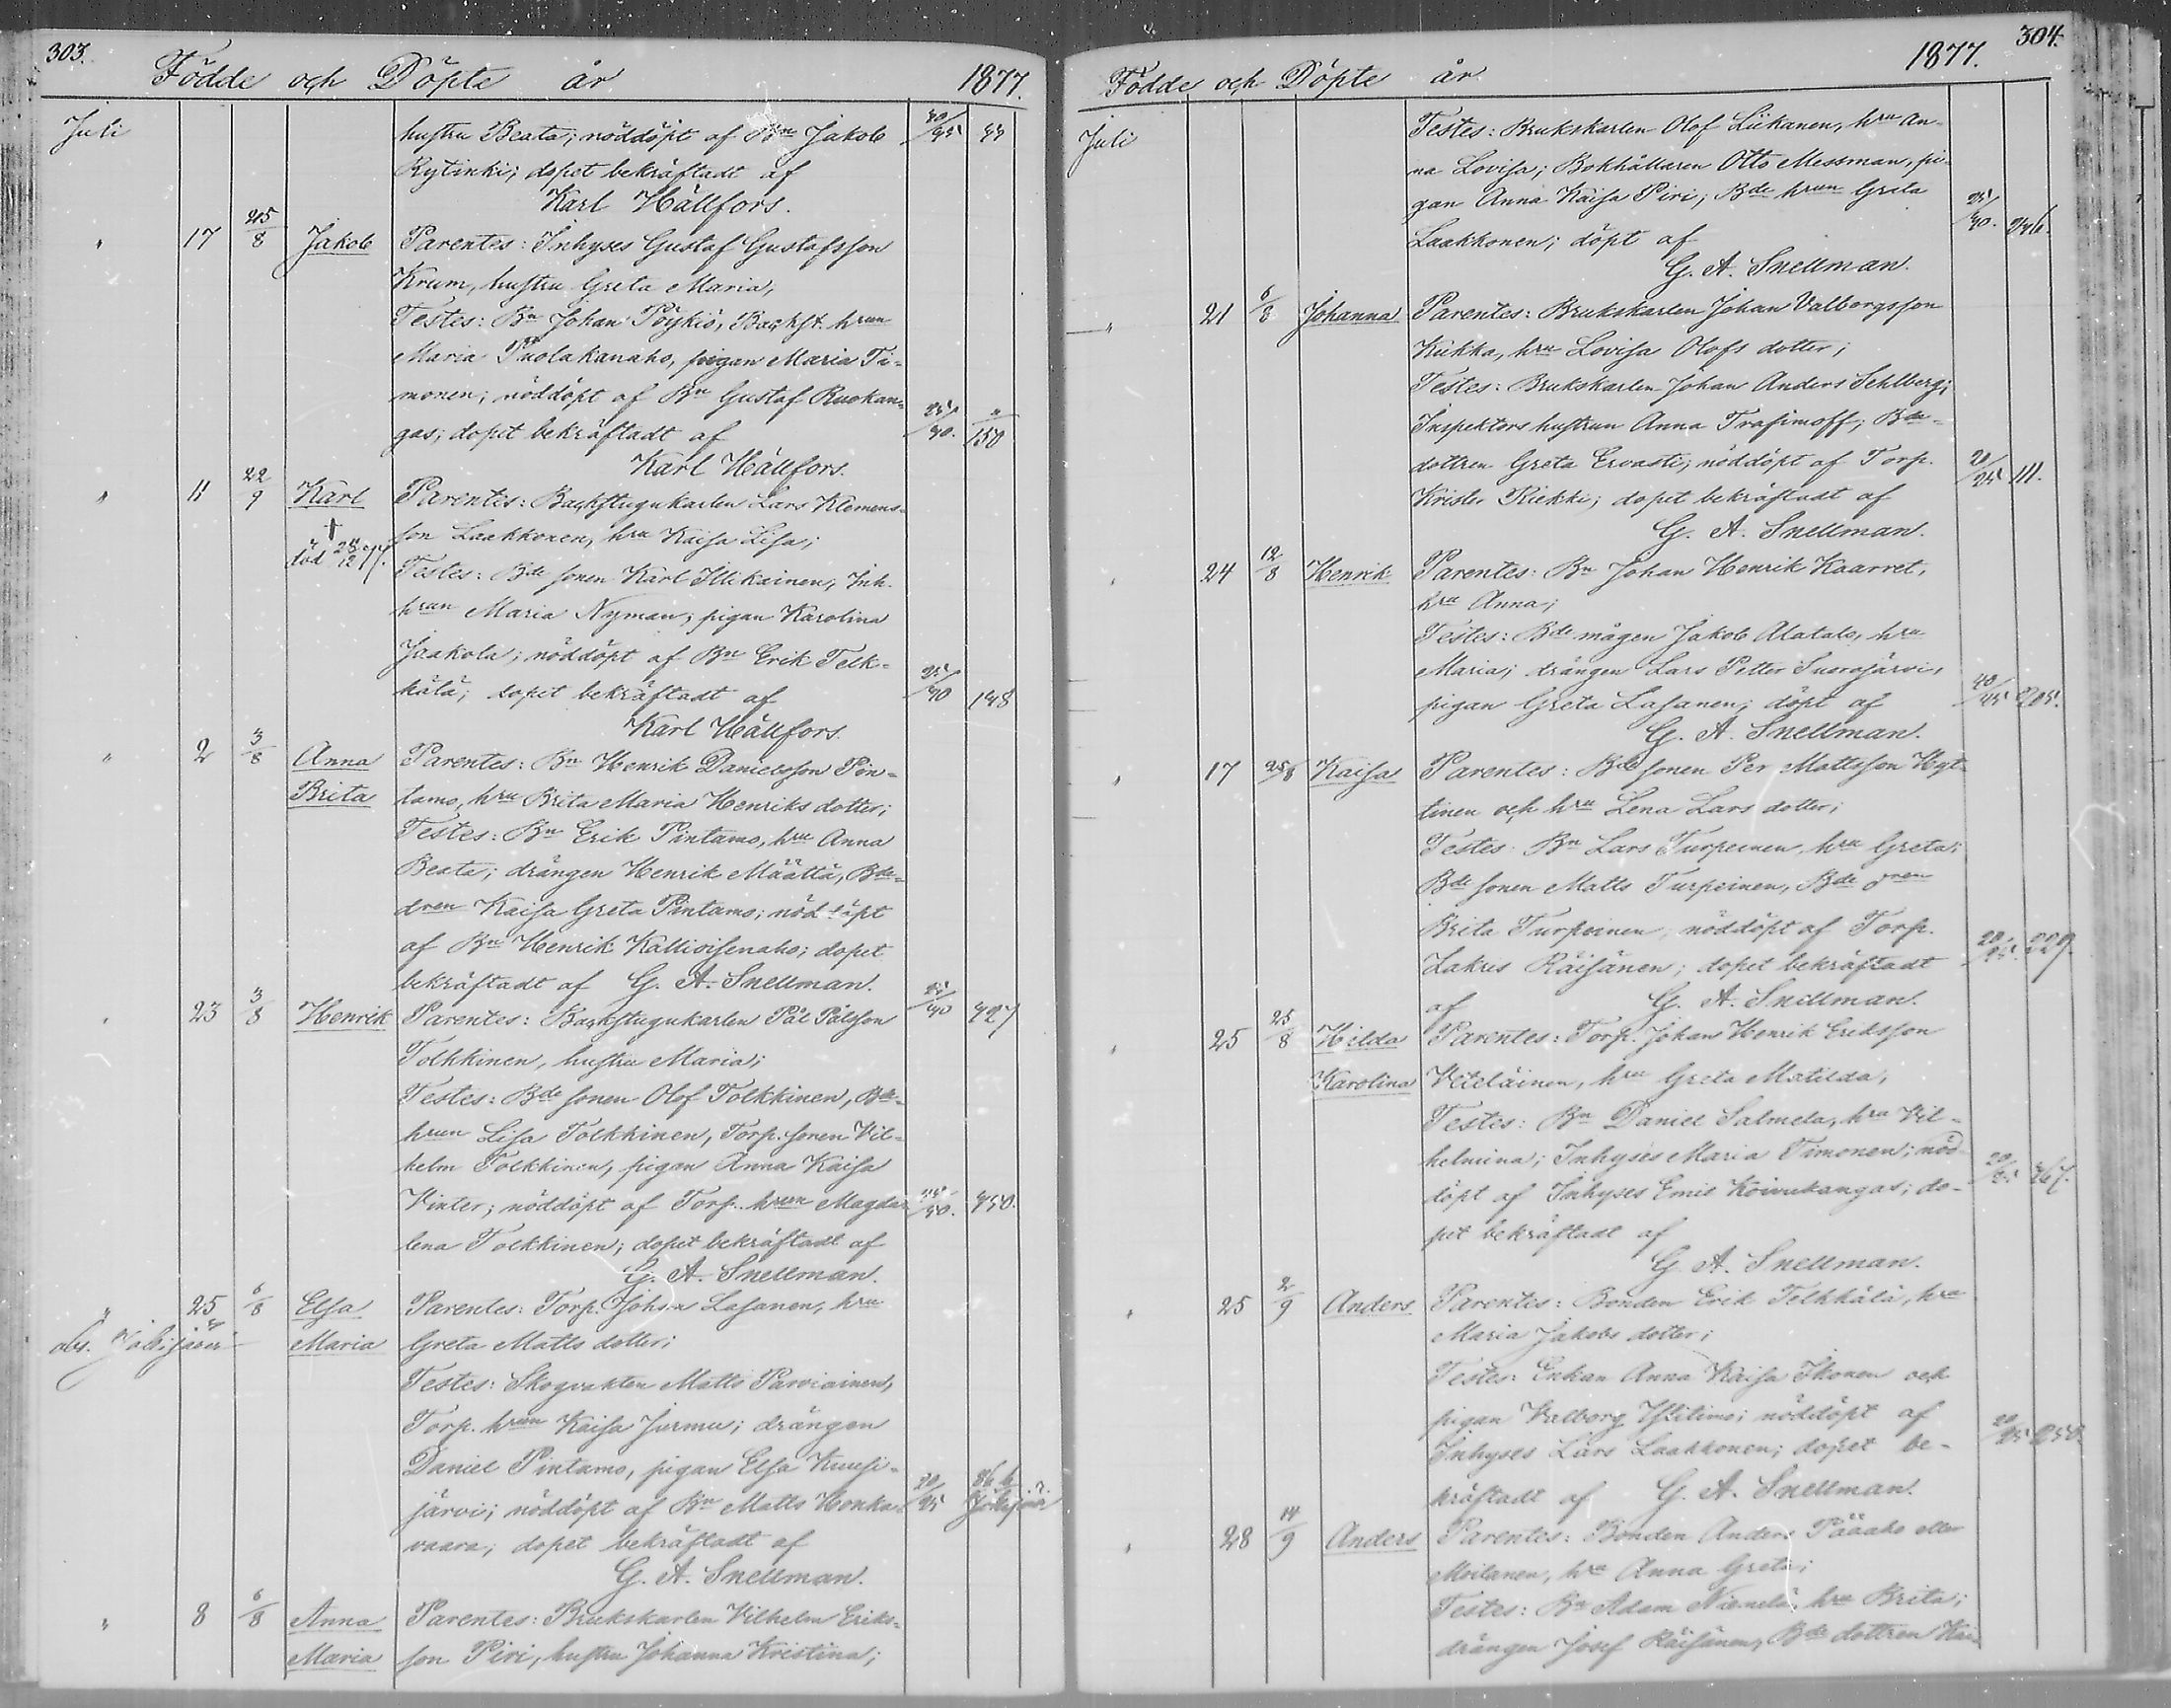 303.
Födde och Döpte år 1877.
Juli hustru Beata; nöddöpt af Bn Jakob 40/45 44
Rytinki; dopet bekräftadt af
Karl Hällfors.
" 17 25/8 Jakob Parentes: Inhyses Gustaf Gustafsson
Krum, hustru Greta Maria,
Testes: Bn Johan Pöykiö, Backst. hrun
Maria Puolakanaho, pigan Maria Ti-
monen; nöddöpt af Bn Gustaf Ruokan-
gas; dopet bekräftadt af 25/40. 150
Karl Hällfors.
" 11 22/9 Karl Parentes: Backstugukarlen Lars Klemens-
son Laakkonen, hru Kaisa Lisa;
död
Testes: Bde sonen Karl Illikainen, Inh.
hrun Maria Nyman; pigan Karolina
Jaakola; nöddöpt af Bn Erik Telk-
kälä; dopet bekräftadt af 25/40 148
Karl Hällfors.
" 2 3/8 Anna Parentes: Bn Henrik Danielsson Pin-
Brita tamo, hru Brita Maria Henriks dotter;
Testes: Bn Erik Pintamo, hru Anna
Beata; drängen Henrik Määttä, Bde-
dren Kaisa Greta Pintamo; nöddöpt
af Bn Henrik Kallioisenaho; dopet
bekräftadt af G. A. Snellman. 25/40 427
" 23 3/8 Henrik Parentes: Backstugukarlen Pål Pålsson
Tolkkinen, hustru Maria;
Testes: Bde sonen Olof Tolkkinen, Bde-
hrun Lisa Tolkkinen, Torp. sonen Vil-
helm Tolkkinen, pigan Anna Kaisa
Vinter; nöddöpt af Torp. hrun Magda- 450.
lena Tolkkinen; dopet bekräftadt af
G. A. Snellman.
" 25 6/8 Elsa Parentes: Torp. Johan Lasanen, hru
Maria Greta Matts dotter;
Testes: Skogvakten Matts Parviainen,
Torp. hrun Kaisa Jurmu; drängen
Daniel Pintamo, pigan Elsa Kuusi-
järvi; nöddöpt af Bn Matts Honka- 20/25
vaara; dopet bekräftadt af
G. A. Snellman.
" 8 6/8 Anna Parentes: Brukskarlen Vilhelm Eriks-
Maria son Piri, hustru Johanna Kristina;
304.
Födde och Döpte år 1877.
Juli Testes: Brukskarlen Olof Liikanen, hru An-
na Lovisa; Bokhållaren Otto Messman, pi-
gan Anna Kaisa Piri; Bde hrun Greta
Laakkonen; döpt af 25/40. 246.
G. A. Snellman.
" 21 6/8 Johanna Parentes: Brukskarlen Johan Valborgsson
Kukka, hru Lovisa Olofs dotter;
Testes: Brukskarlen Johan Anders Sehlberg;
Inspektors hustrun Anna Trofimoff; Bde-
dottren Greta Ervasti; nöddöpt af Torp.
Krister Riekki; dopet bekräftadt af 20/25 111.
G. A. Snellman.
" 24 12/8 Henrik Parentes: Bn Johan Henrik Kaarret,
hru Anna;
Testes: Bde mågen Jakob Alatalo, hru
Maria; drängen Lars Petter Suorajärvi,
pigan Greta Lasanen; döpt af 40/45 205.
G. A. Snellman.
" 17 25/8 Kaisa Parentes: Bde sonen Per Mattsson Hyt-
tinen och hru Lena Lars dotter;
Testes: Bn Lars Turpeinen, hru Greta;
Bde sonen Matts Turpeinen, Bde dren
Brita Turpeinen, nöddöpt af Torp.
Zakris Räisänen; dopet bekräftadt 229.
af G. A. Snellman.
" 25 25/8 Hilda Parentes: Torp. Johan Henrik Eriksson
Karolina Veteläinen, hru Greta Matilda,
Testes: Bn Daniel Salmela, hru Vil-
helmina; Inhyses Maria Timonen; nöd-
döpt af Inhyses Emil Koivukangas; do-
pet bekräftadt af
G. A. Snellman.
" 25 2/9 Anders Parentes: Bonden Erik Telkkälä, hru
Maria Jakobs dotter;
Testes: Enkan Anna Kaisa Ikonen och
pigan Valborg Ylitimo; nöddöpt af
Inhyses Lars Laakkonen; dopet be- 20/25 250.
kräftadt af G. A. Snellman.
" 28 14/9 Anders Parentes: Bonden Anders Pääaho eller
Moilanen, hru Anna Greta;
Testes: Bn Adam Niemelä, hru Brita;
drängen Josef Räisänen, Bde dottren Kai-